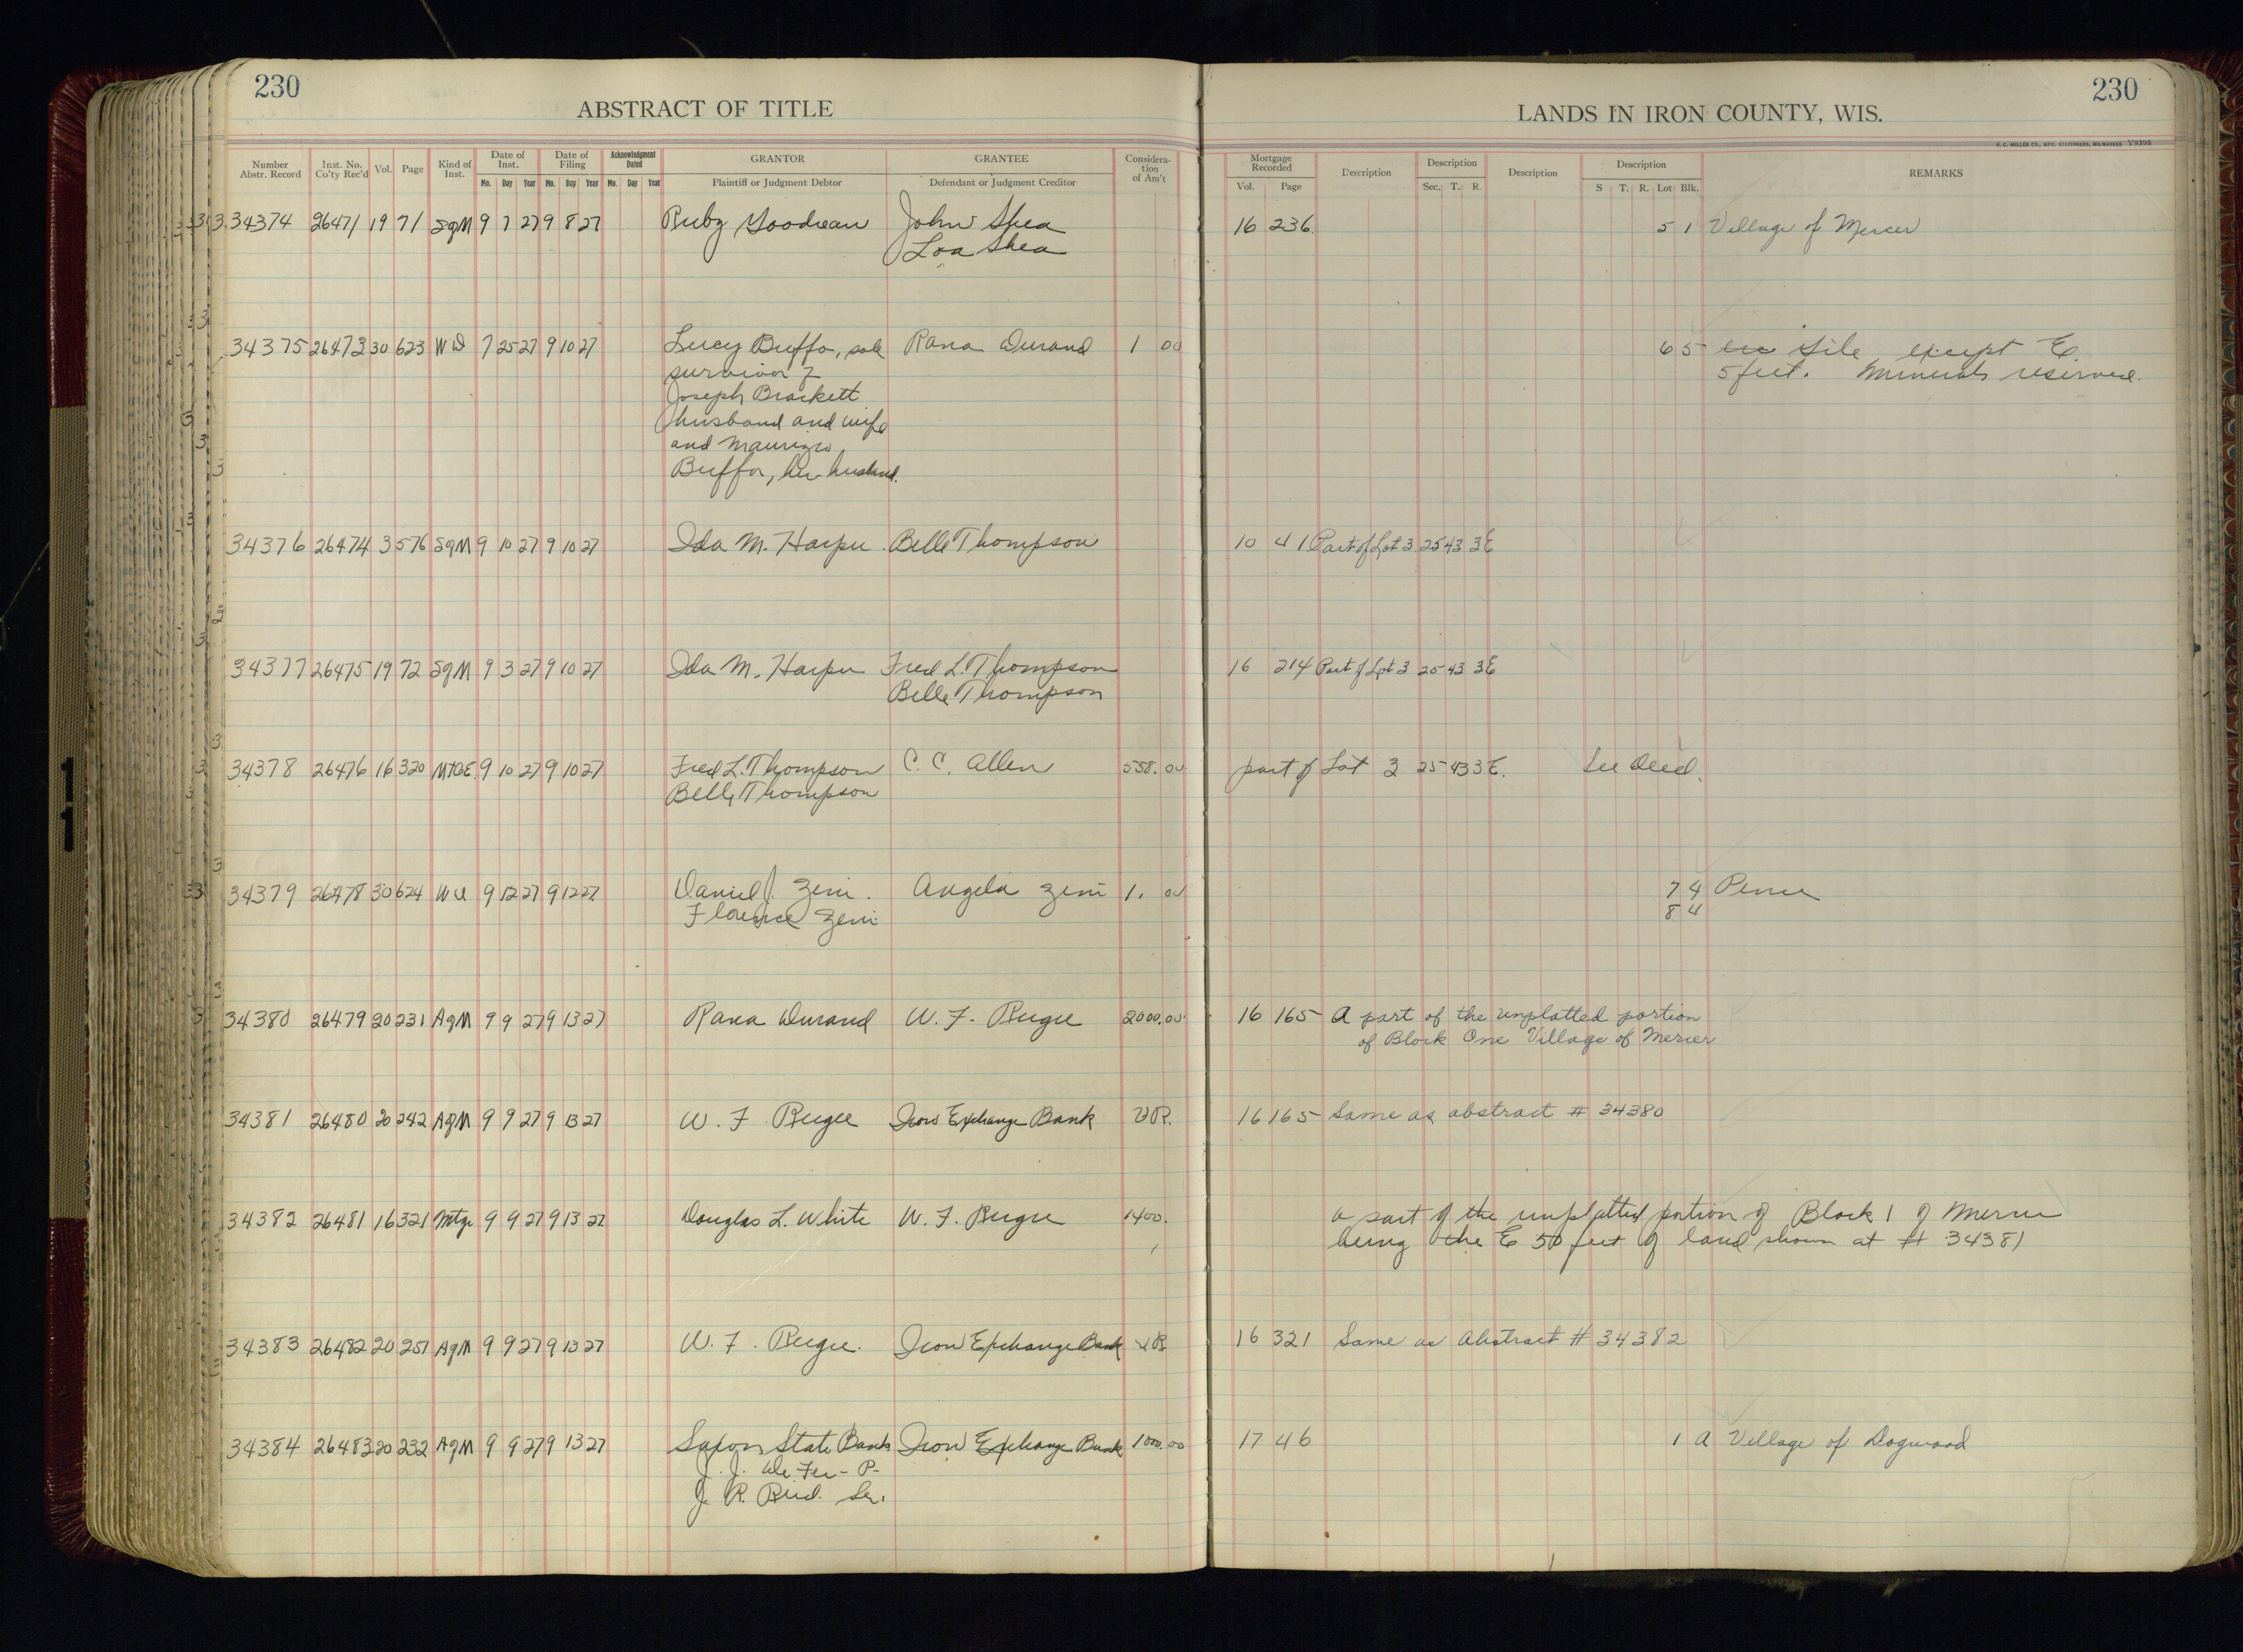 230
ABSTRACT OF TITLE
Number Abstr. Record
Inst. No. Co'ty Rec'd
Vol.
Page
Kind of Inst.
Date of Inst.
Mo. Day Year
Date of Filing
Mo. Day Year
Acknowledgment Dated
Mo. Day Year
GRANTOR
Plaintiff or Judgment Debtor
GRANTEE
Defendant or Judgment Creditor
Considera-
tion
of Am't
34374 26471 19 71 SgM 9 7 27 9 8 27 Ruby Goodreau John Shea
Loa Shea
34375 26473 30 623 WD 7 25 27 9 10 27 Lucy Buffo, sole Rana Durand 1 00
survivor of
Joseph Brackett
husband and wife
and Maurizio
Buffon, her husband.
34376 26474 3 576 SgM 9 10 27 9 10 27 Ida M. Harper Belle Thompson
34377 26475 19 72 SgM 9 3 27 9 10 27 Ida M. Harper Fred L. Thompson
Belle Thompson
34378 26476 16 320 MTGE 9 10 27 9 10 27 Fred L. Thompson C. C. Allen 558.00
Belle Thompson
34379 26478 30 624 WD 9 12 27 9 12 27 Daniel J. Zeni. Angela Zeni 1. 00
Florence Zeni
34380 26479 20 231 AgM 9 9 27 9 13 27 Rana Durand W. F. Rugee 2000.00
34381 26480 20 242 AgM 9 9 27 9 13 27 W. F. Rugee Iron Exchange Bank VR.
34382 26481 16 321 Mtge 9 9 27 9 13 27 Douglas L. White W. F. Rugee 1400.
34383 26482 20 251 AgM 9 9 27 9 13 27 W. F. Rugee. Iron Exchange Bank VR
34384 26483 20 232 AgM 9 9 27 9 13 27 Saxon State Bank Iron Exchange Bank 1000.00
J. J. De Fer - P-
J. R. Reid. Sec.
230
LANDS IN IRON COUNTY, WIS.
H. C. MILLER CO., MFG. STATIONERS, MILWAUKEE V9398
Mortgage Recorded
Vol. Page
Description
Description
Sec. T. R.
Description
Description
S T. R. Lot Blk.
REMARKS
16 236 5 1 Village of Mercer
6 5 Gile except E.
5 feet. Minerals reserved.
10 41 Part of Lot 3 25 43 3E
16 214 Part of Lot 3 25 43 3E
part of Lot 3 25 43 3E. See Deed.
7 4 Pence
8 4
16 165 A part of the unplatted portion
of Block One Village of Mercer
16 165 Same as abstract # 34380
a part of the unplatted portion of Block 1 of Mercer
being the E 50 feet of land shown at # 34381
16 321 Same as Abstract # 34382
17 46 1 A Village of Dogwood